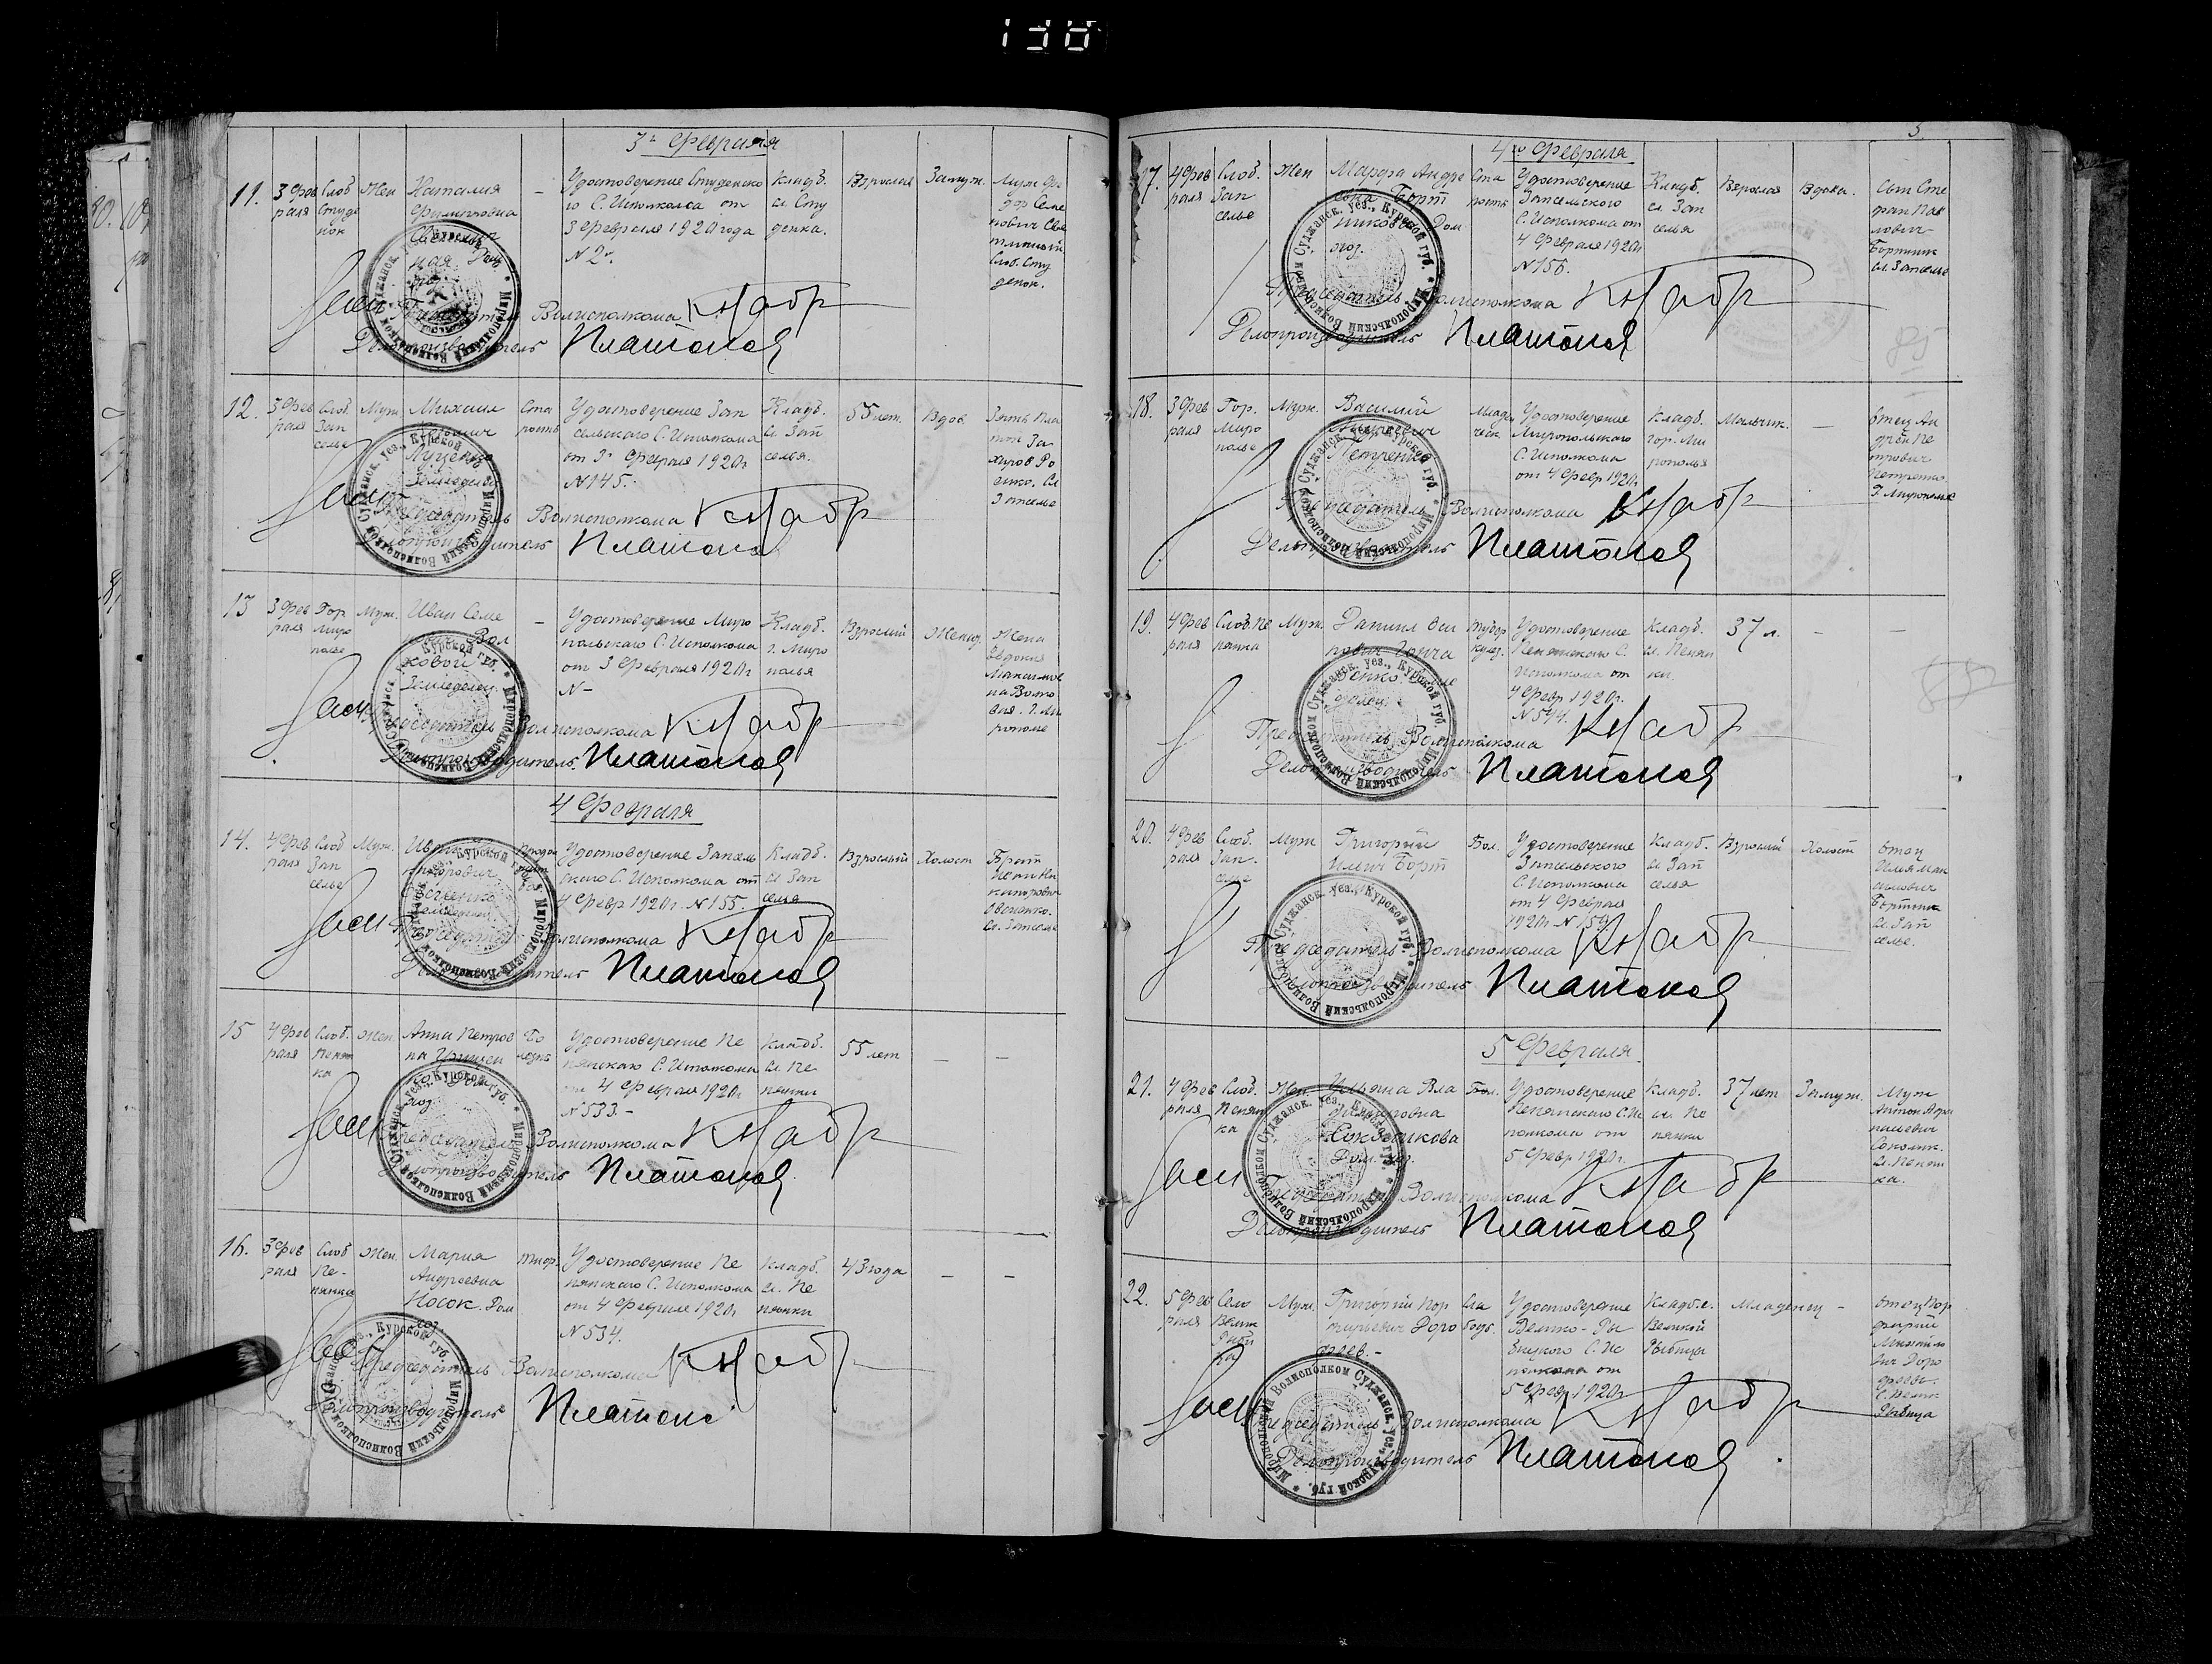 138
3го Февраля
11.
3 Фев
раля
Слоб
Студе
нок
Жен
Наталия
Филипповна
ная Дом.
хоз.
—
Удостоверение Студенско
го С. Исполкома от
3 Февраля 1920 года
№ 2.
Кладб.
сл. Сту
денка.
Взрослая
Замуж.
Муж Фе
дор Семе
нович Све
тличный
Слоб. Сту
денок.
Председатель Волисполкома
Делопроизводитель Платонов
12.
3 Фев
раля
Слоб.
Зап
селье
Муж.
Михаил
Луценко
Земледел.
Ста
рость
Удостоверение Зап
сельского С. Исполкома
от 3 Февраля 1920 г.
№ 145.
Кладб.
Сл. Зап
селья.
55 лет.
Вдов.
Зять Пла
тон За
харов Ро
Сл.
Запселье
Председатель Волисполкома
Делопроизводитель Платонов
13
3 Фев
раля
Гор.
Миро
полье
Муж.
Иван Семе
нович Вол
ковой
Земледелец.
—
Удостоверение Миро
польского С. Исполкома
от 3 Февраля 1920 г.
№ —
Кладб.
г. Миро
полья
Взрослый
Женат
Жена
Евдокия
Максимов
на Волко
вая. г. Ми
рополье
Председатель Волисполкома
Делопроизводитель. Платонов
4 Февраля
14.
4 Фев
раля
Слоб
Зап
селье
Муж.
Иван
Никанорович
Овсиенко
Земледелец.
Удостоверение Запсель
ского С. Исполкома от
4 Февр 1920 г. № 155.
Кладб.
сл Зап
селья
Взрослый
Холост
Брат
Ни
канорович
Овсиенко.
Сл. Запселье
Председатель Волисполкома
Делопроизводитель Платонов
15
4 Фев
раля
Слоб.
Пенян
ка
Жен.
Анна Петров
на
хоз
Бо
лезнь
Удостоверение Пе
нянского С. Исполкома
от 4 Февраля 1920 г.
№ 533. —
Кладб.
Сл. Пе
нянки
55 лет
—
—
Председатель Волисполкома
Делопроизводитель Платонов
16.
3 Фев
раля
Слоб
Пе-
нянка
Жен.
Мария
Андреевна
Носок. Дом
хоз.
Тиф.
Удостоверение Пе
нянского С. Исполкома
от 4 Февраля 1920 г.
№ 534.
Кладб.
Сл. Пе
нянки
43 года
—
—
Председатель Волисполкома
Делопроизводитель Платонов
3
4го Февраля
17.
4 Фев
раля
Слоб.
Зап
селье
Жен
Марфа Андре
евна Борт
никова Дом
хоз.
Ста
рость
Удостоверение
Запсельского
С. Исполкома от
4 Февраля 1920 г.
№ 156.
Кладб.
сл. Зап
селья
Взрослая
Вдова.
Сын Сте
фан Пав
лович
Бортник
сл. Запселье
Председатель Волисполкома
Делопроизводитель Платонов
85
18.
3 Фев
раля
Гор.
Миро
полье
Муж.
Василий
Андреевич
Петренко
Младен
ческ
Удостоверение
Миропольского
С. Исполкома
от 4 Февр 1920 г.
Кладб.
гор. Ми
рополья
Мальчик.
—
Отец Ан
дрей Пе
трович
Петренко.
Г. Мирополье
Председатель Волисполкома
Делопроизводитель Платонов
19.
4 Фев
раля
Слоб. Пе
нянка
Муж.
Даниил Оси
пович Гонча
ренко Земле
делец.
Тубер
кулез.
Удостоверение
Пенянского С.
Исполкома от
4 Февр 1920 г.
№ 544.
Кладб.
сл. Пенян
ки.
37 л.
—
—
Председатель Волисполкома
Делопроизводитель Платонов
20.
4 Фев
раля
Слоб.
Зап.
селье
Муж
Григорий
Ильич Борт
Бол.
Удостоверение
Запсельского
С. Исполкома
от 4 Февраля
1920 г. № 159
Кладб.
сл Зап
селья
Взрослый
Холост
Отец
Илья Мак
симович
Бортник
Сл. Зап
селье.
Председатель Волисполкома
Делопроизводитель Платонов
5 Февраля
21.
4 Фев
раля
Слоб.
Пенян
ка
Жен.
Ульяна Вла
димировна
Дом. хоз.
Бол.
Удостоверение
Пенянского С. Ис
полкома от
5 Февр 1920 г.
Кладб.
сл. Пе
нянки
37 лет
Замуж.
Муж
Антон
Сл. Пенян
ка.
Председатель Волисполкома
Делопроизводитель Платонов
22.
5 Фев
раля
Село
Велик
Рыби
ца
Муж.
Григорий Пор
фирьевич Доро
феев. —
Сла
бость.
Удостоверение
Велико-Ры
бицкого С. Ис
полкома от
5 Февр 1920 г.
Кладб. с.
Великой
Рыбицы
Младенец
—
Отец Пор
фирий
Михайло
вич Доро
феев.
С. Велик.
Рыбица
Председатель Волисполкома
Делопроизводитель Платонов
Миропольский Волисполком Суджанск. уез., Курской губ.